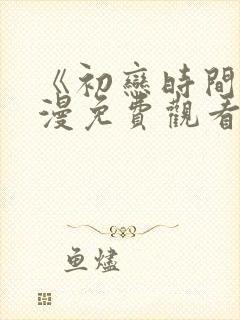 《初戀時間
漫免費觀看
鱼燼